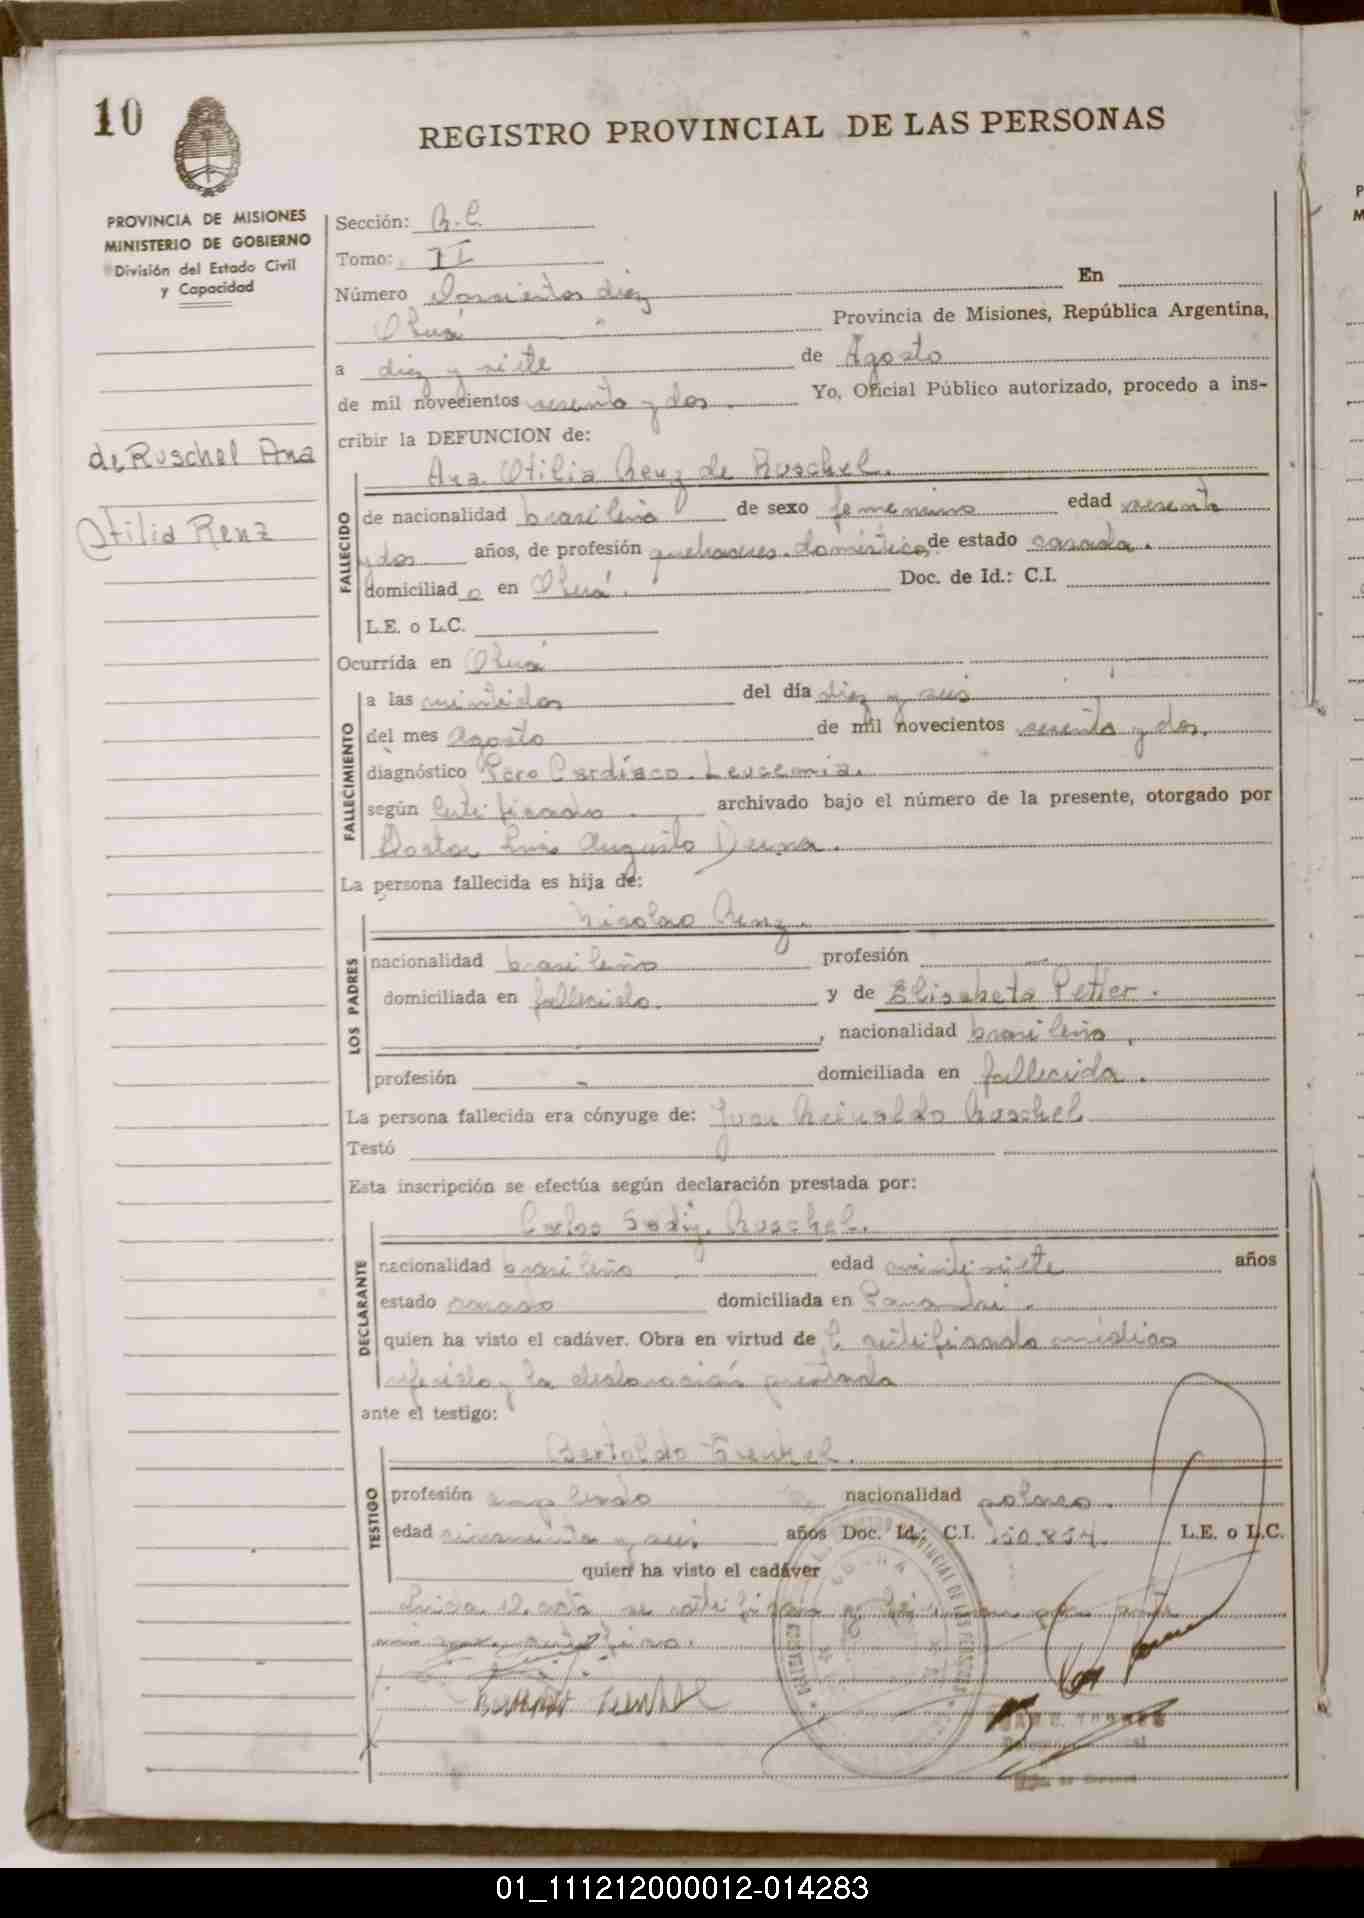 10
REGISTRO PROVINCIAL DE LAS PERSONAS
PROVINCIA DE MISIONES
MINISTERIO DE GOBIERNO
División del Estado Civil
y Capacidad
de Ruschel Ana
Otilia Renz
Sección:
Tomo: II
Número Doscientos diez En
Oberá Provincia de Misiones, República Argentina,
a diez y siete de Agosto
de mil novecientos sesenta y dos. Yo, Oficial Público autorizado, procedo a ins-
cribir la DEFUNCION de:
Ana Otilia Renz de Ruschel.
FALLECIDO
de nacionalidad brasileña de sexo femenino edad sesenta
y dos años, de profesión quehaceres domésticos de estado casada.
domiciliad o en Oberá. Doc. de Id.: C.I.
L.E. o L.C.
Ocurrida en Oberá
FALLECIMIENTO
a las veintidos del día diez y seis
del mes Agosto de mil novecientos sesenta y dos.
diagnóstico Paro Cardíaco. Leucemia.
según Certificado archivado bajo el número de la presente, otorgado por
Doctor Luis Augusto Derna.
La persona fallecida es hija de:
LOS PADRES
Nicolao Renz.
nacionalidad brasileño profesión
domiciliada en fallecido. y de Elisabeta Petter.
, nacionalidad brasileña,
profesión domiciliada en fallecida.
La persona fallecida era cónyuge de: Juan Reinaldo Ruschel
Testó
Esta inscripción se efectúa según declaración prestada por:
DECLARANTE
Carlos Ruschel.
nacionalidad brasileño edad veintisiete años
estado casado domiciliada en Panambí.
quien ha visto el cadáver. Obra en virtud de C. certificado médico
referido y la declaración prestada
ante el testigo:
TESTIGO
Bertoldo Frenkel.
profesión empleado nacionalidad polaco.
edad cincuenta y seis años Doc. Id.: C.I. L.E. o L.C.
quien ha visto el cadáver
Leída el acta
01_111212000012-014283